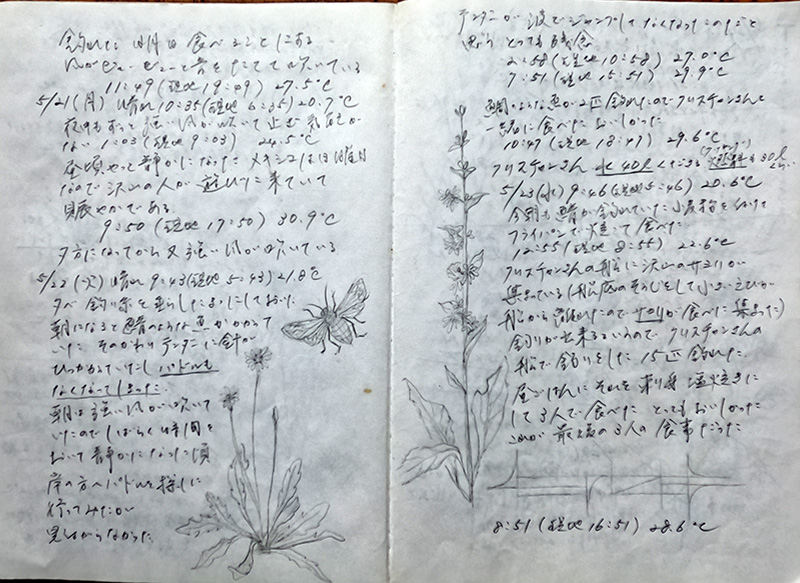 釣れた 明日 食べることにする
風がビュービューと音をたてて吹いている
11:49 (現地 19:49) 27.5°C
5/21(月) 晴れ 10:35(現地 6:35) 20.7°C
夜中もずっと強い風が吹いて止む気配が
ない 1:03 (現地 9:03) 24.5°C
昼頃やっと静かになった メキシコは日曜日
なので沢山の人が遊びに来ていて
賑やかである
9:50 (現地 17:50) 30.9°C
夕方になってから又強い風が吹いている
5/22 (火) 晴れ 9:43(現地 5:43) 21.8°C
夕べ釣り糸を垂らしたままにしておいた
朝になると鯖のような魚がかかって
いた そのかわりテンダーに針が
ひっかかっていたしパドルも
なくなってしまった
朝は強い風が吹いて
いたのでしばらく時間を
おいて静かになった頃
岸の方へパドルを探しに
行ってみたが
見つからなかった
テンダーが波でジャンプしてなくなったこのだと
思う とっても残念
2:58 (現地 10:58) 27.0°C
7:51 (現地 15:51) 29.9°C
鯛のような魚が2匹釣れたのでクリスチャンさんと
一緒に食べた おいしかった
10:47 (現地 18:47) 29.6°C
クリスチャンさん 水40ℓくださる 燃料も30ℓ
くらい
5/23(水) 9:46 (現地 5:46) 20.6°C
今朝も鯖が釣れていた 小麦粉を付けて
フライパンで焼いて食べた
12:55 (現地 8:55) 22.6°C
クリスチャンさんの船に沢山のサヨリが
集まっている (船底のそうじをして小さいエビが
船から離れたのでサヨリが食べた 集まった)
釣りが出来るというので クリスチャンさんの
船で釣りをした 15匹釣れた
昼ごはんにそれを刺身 塩焼きに
して3人で食べた とってもおいしかった
これが最後の3人の食事だった
8:51 (現地 16:51) 28.6°C